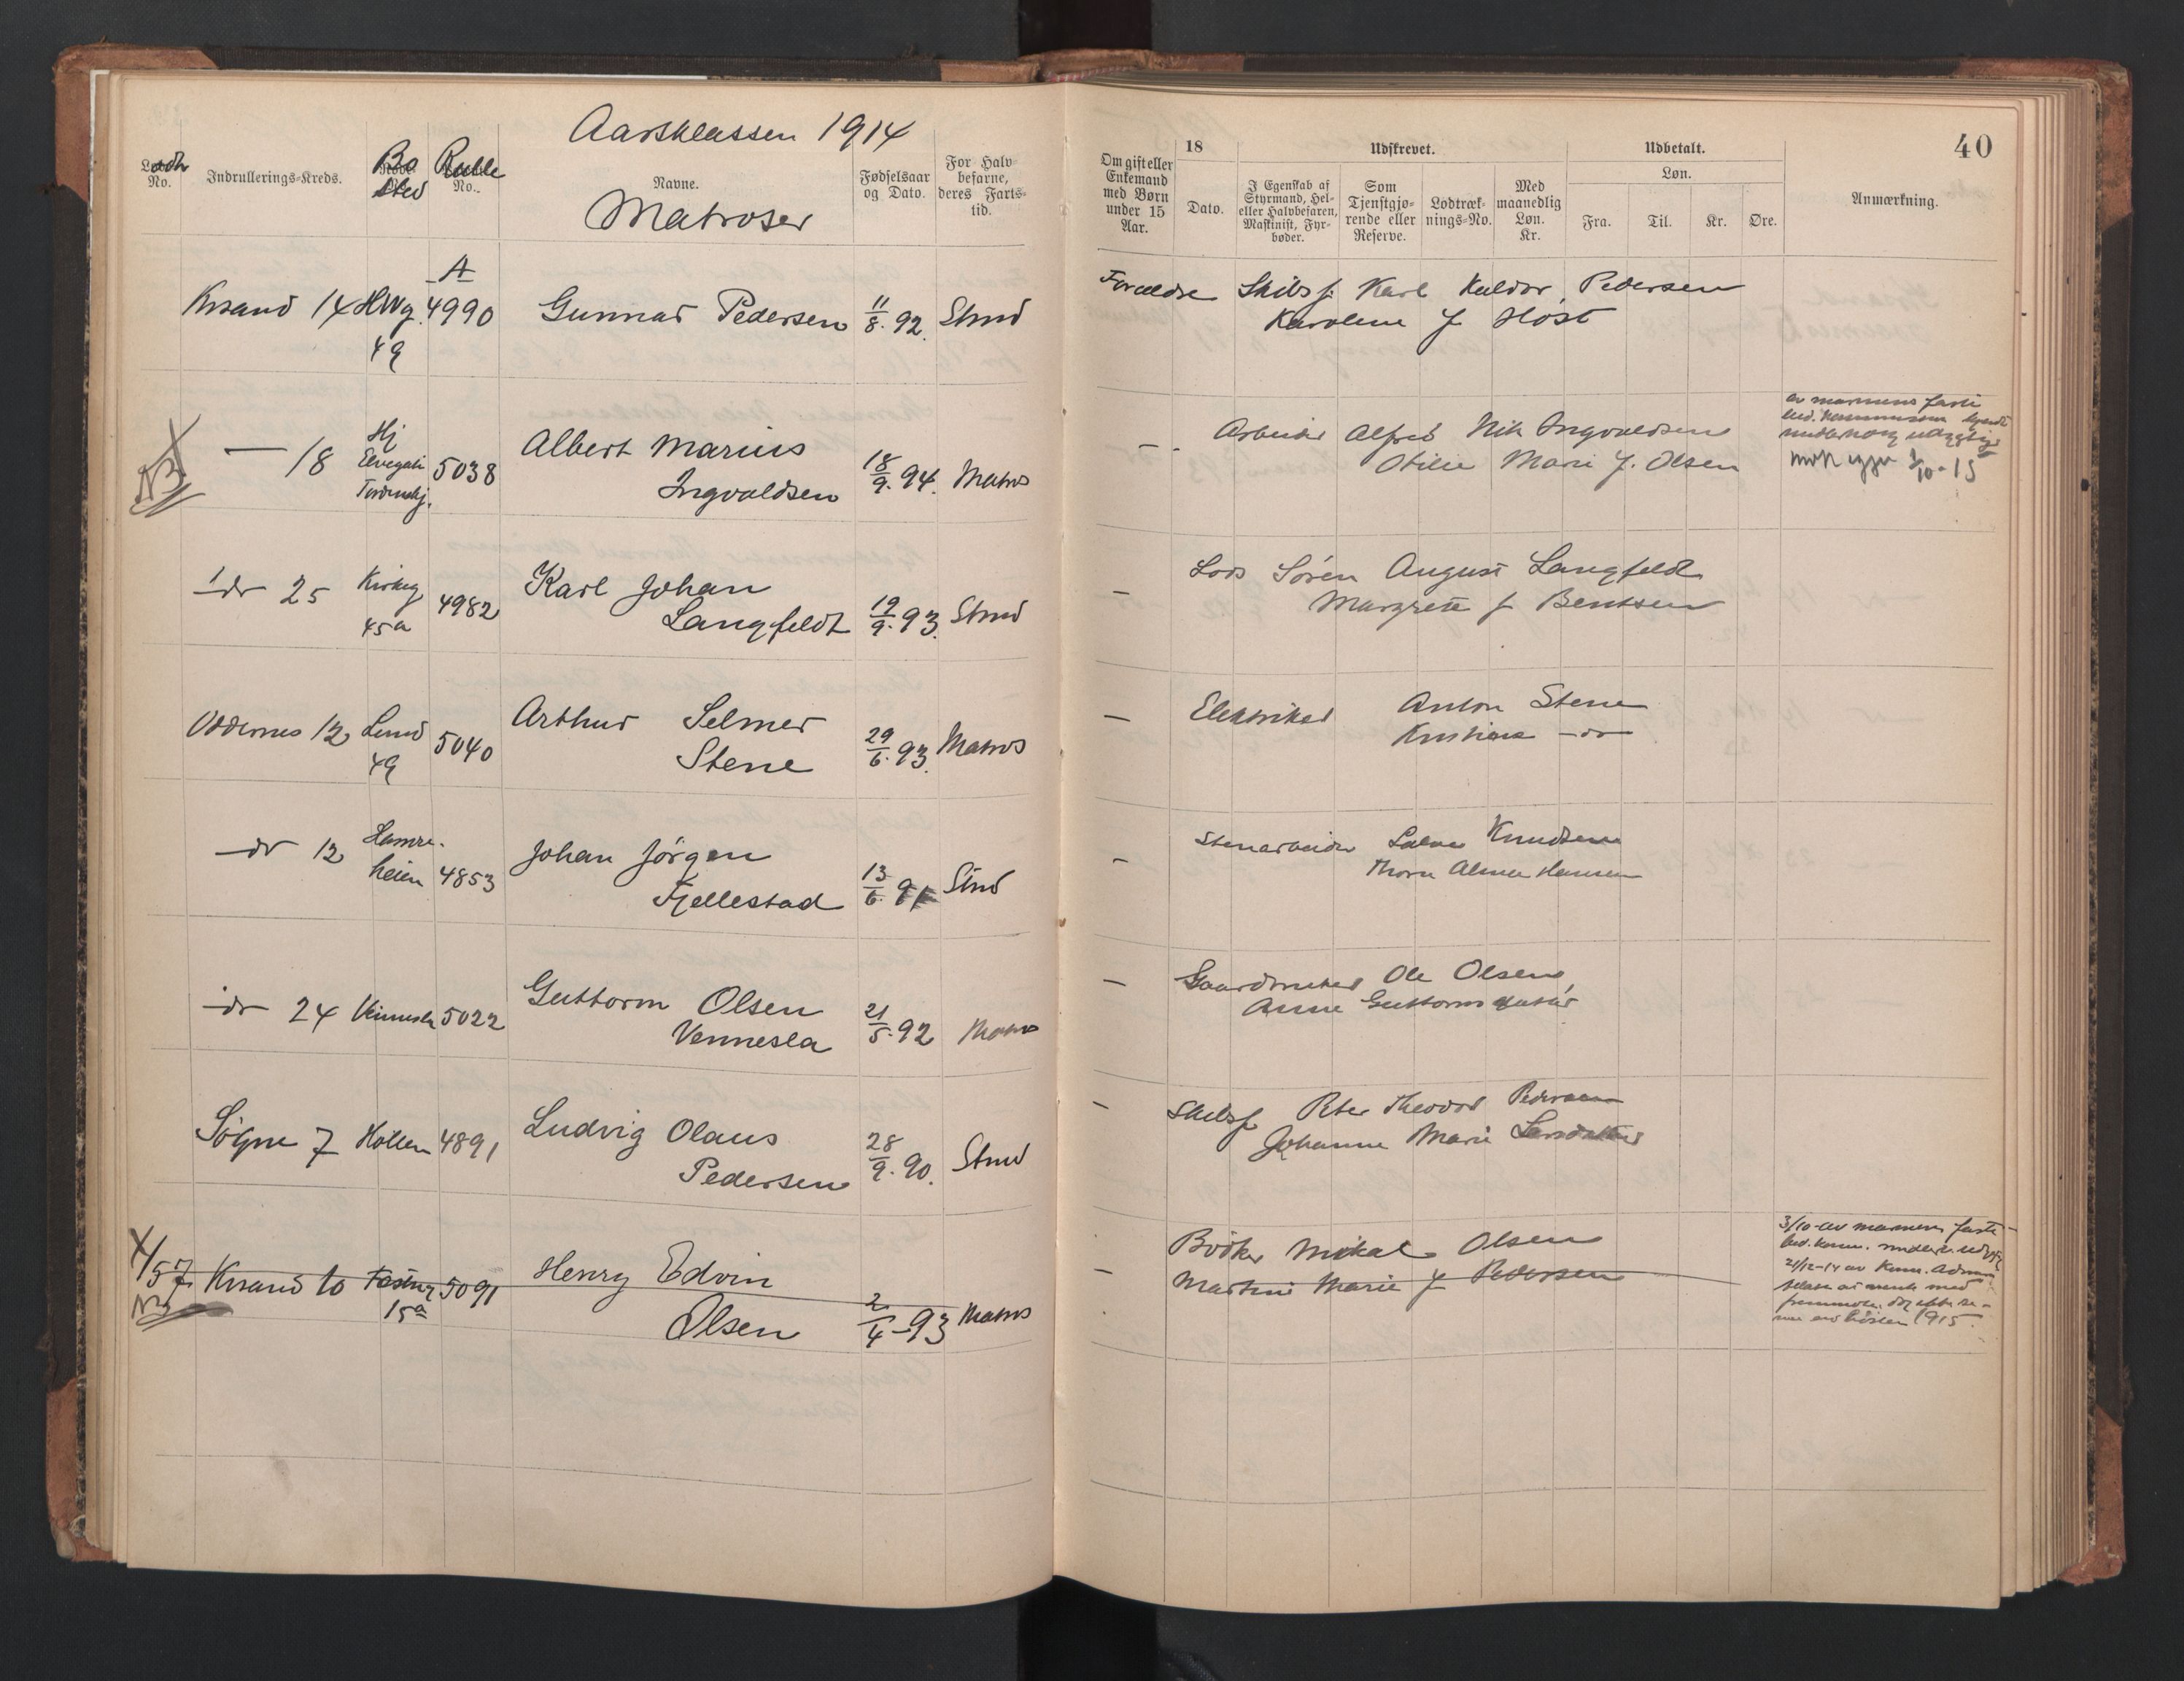 Aarsklassen 1914
40
Lodtr.
No.
Indrullerings-Kreds.
Bosted
Rulle
No.
Navne.
Matroser
Fødselsaar
og Dato.
For Halv-
befarne,
deres Farts-
tid.
Om gift eller
Enkemand
med Børn
under 15
Aar.
18
Dato.
Udskrevet.
I Egenskab af
Styrmand, Hel-
eller Halvbefaren,
Maskinist, Fyr-
bøder.
Som
Tjenstgjø-
rende eller
Reserve.
Lodtræk-
nings-No.
Med
maanedlig
Løn.
Kr.
Udbetalt.
Løn.
Fra.
Til.
Kr.
Øre.
Anmærkning.
A
Krsand 14 HWg. 4990 Gunnar Pedersen 11/8. 92. Strnd
49
Forældre Skibsf. Karl Kaldor Pedersen
Karoline f Høst
N3
— 18 Hj Elvegatn Tordenskj. 5038 Albert Marius
Ingvaldsen 18/9. 94. Matros
— Arbeider Alfred Nik Ingvaldsen
Otilie Marie f. Olsen
av marinens faste
1/10-15
1 —dr 25 Kirkeg 45a 4982 Karl Johan
Langfeldt 19/9. 93. Strnd
— Lods Sören August Langfeldt
Margrete f Bentsen
Oddernes 12 Lund 49 5040 Arthur Selmer
Stene 29/6. 93. Matros
— Elektriker Anton Stene
Kristiane —dr—
—dr 12 Hamre-
heien 4853 Johan Jörgen
Fjellestad 13/6. 91 Strnd
— Stenarbeider Salve Knudsen
Thora Alma Hansen
—dr 24 Vennesla 5022 Guttorm Olsen
Vennesla 21/5. 92 Matros
— Gaardbruker Ole Olsen,
Anne Guttormsdatter
Sögne 7 Höllen 4891 Ludvig Olaus
Pedersen 28/9. 90. Strnd
— Skibsf Peter Theodor Pedersen
Johanne Marie Larsdatter
X/57
N3
Krsand 10 Fæstng 15a 5091 Henry Edvin
Olsen 2/4 -93 Matros
— Bödker Mikal Olsen
Martine Marie f Pedersen
3/10- av marinens faste
bed. komm.
21/12-14 av Kom. Adm
høsten 1915.